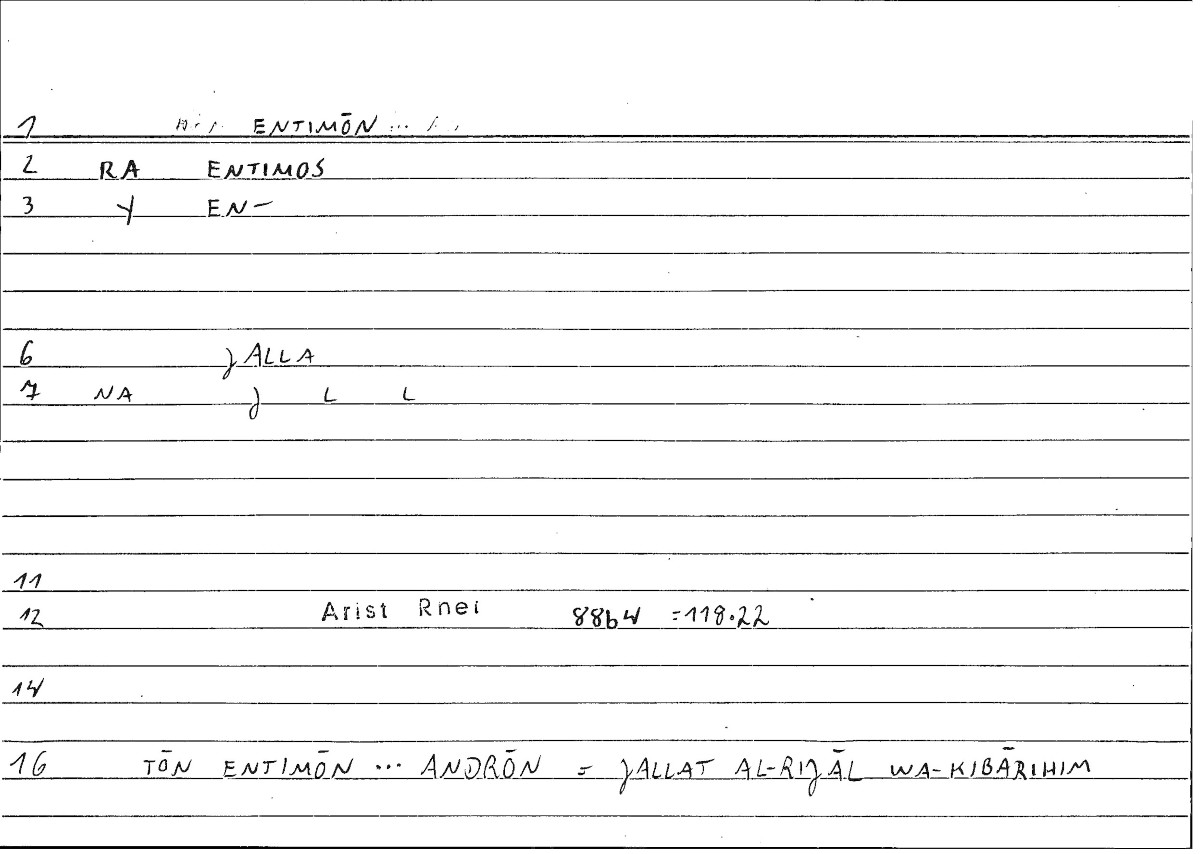 1 ENTIMŌN ...
2 RA ENTIMOS
3 Y EN-
6 JALLA
7 NA J L L
11
12 Arist Rnei 88b4 =118.22
14
16 TŌN ENTIMŌN ... ANDRŌN = JALLAT AL-RIJĀL WA-KIBĀRIHIM